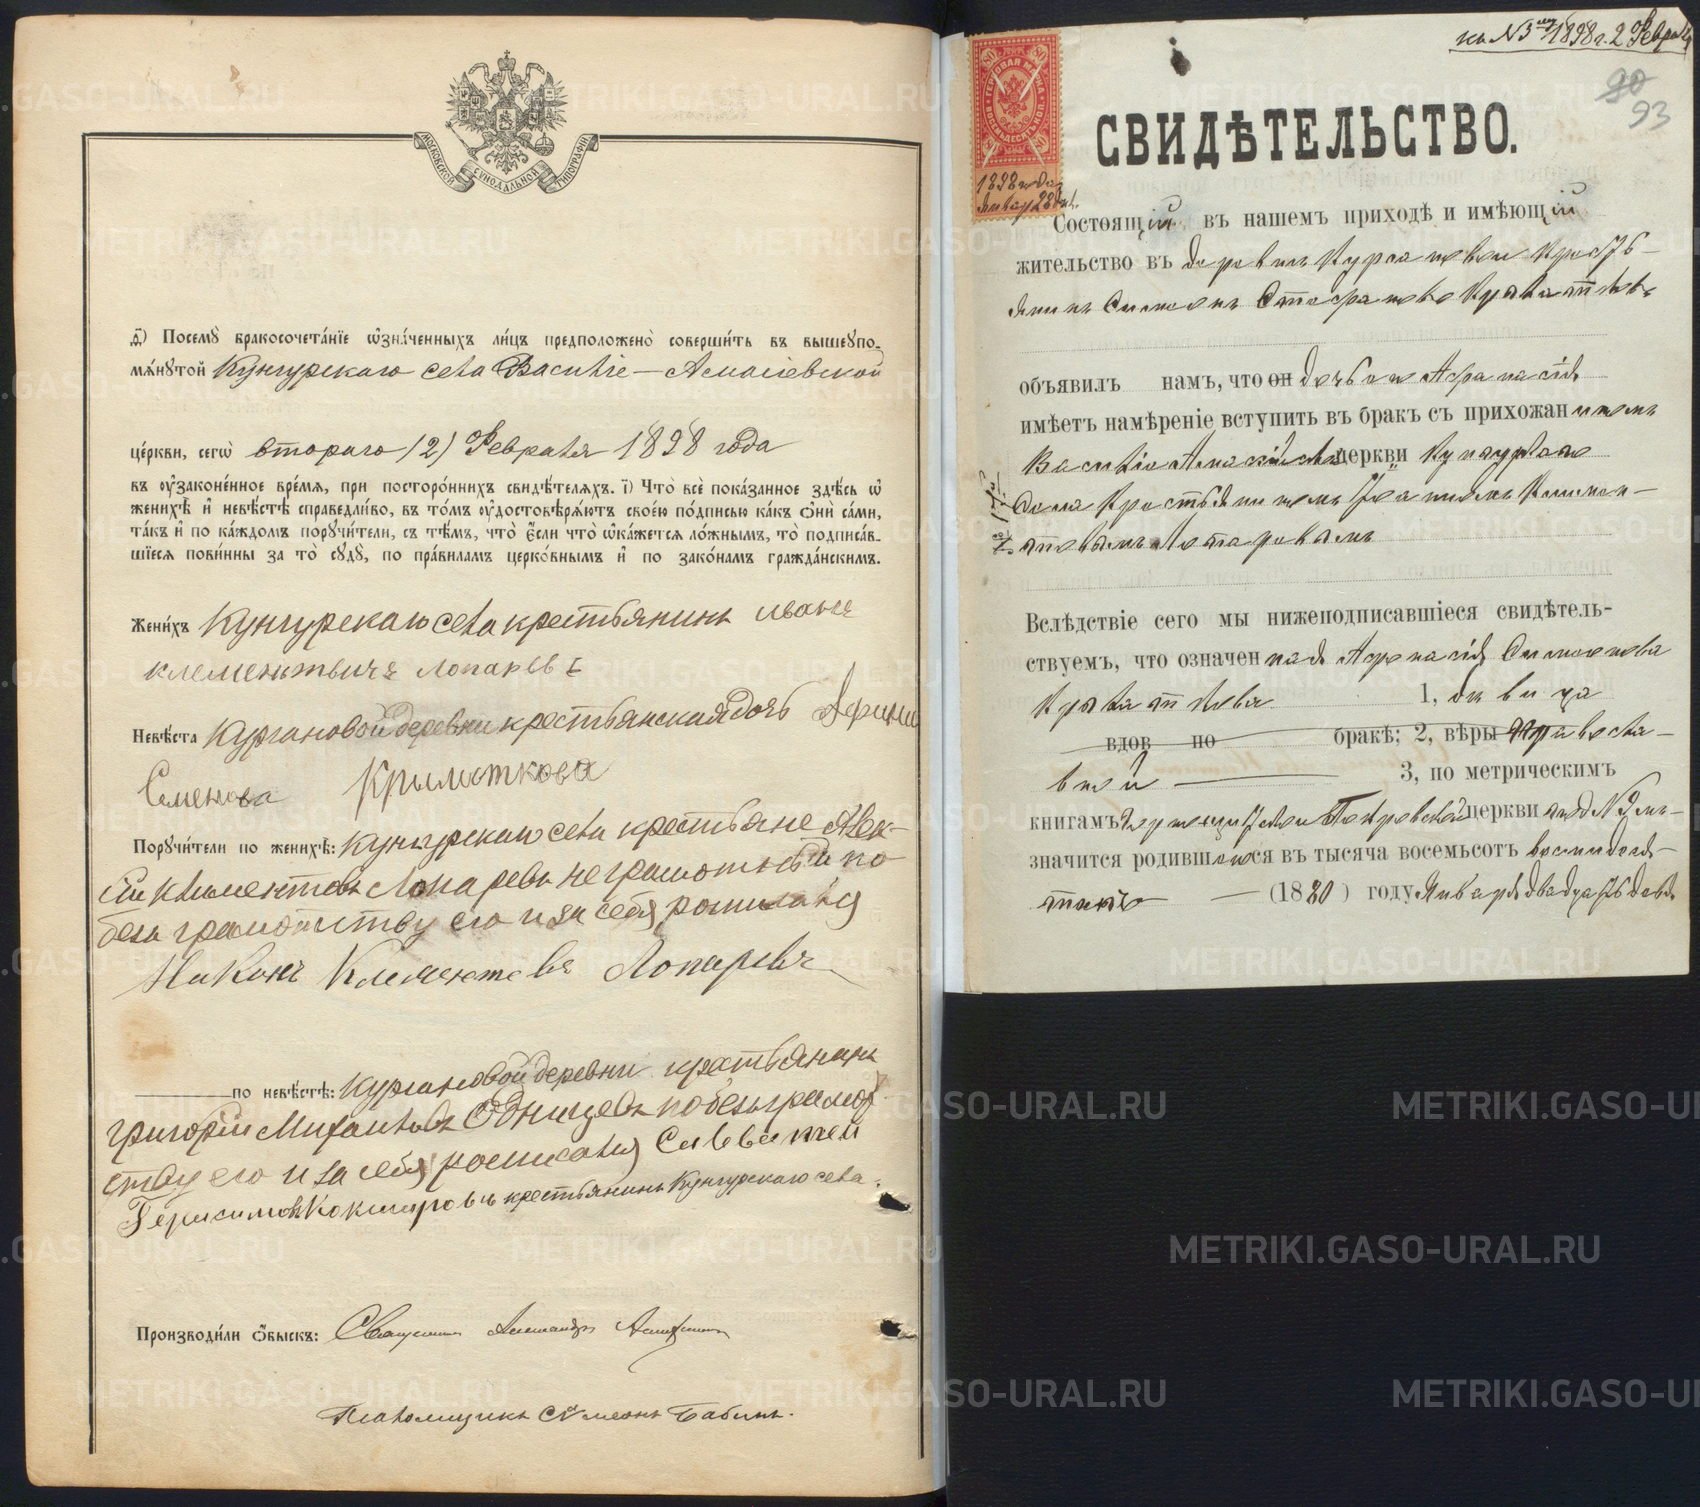 МОСКОВСКОЙ СѴНОДАЛЬНОЙ ТИПОГРАФІИ
ѳ҃) Посемꙋ̀ бракосочета́нїе ѡ҆зна́ченныхъ ли́цъ предположено̀ соверши́ть въ вышеꙋпо-
мѧ́нꙋтой Кунгурскаго села Василіе-Амасіевской
це́ркви, сегѡ̀ втораго (2) Февраля 1898 года
въ ᲂу҆зако́ненное вре́мѧ, при посторо́ннихъ свидѣ́телѧхъ. і҃) Что̀ всѐ пока́занное здѣ́сь ѡ҆
женихѣ̀ и҆ невѣ́стѣ справедли́во, въ то́мъ ᲂу҆достовѣрѧ́ютъ свое́ю по́дписью ка́къ ѻ҆нѝ са́ми,
та́къ и҆ по ка́ждомъ поручи́тели, съ тѣ́мъ, что̀ є҆́сли что̀ ѡ҆ка́жется ло́жнымъ, то̀ подписа́в-
шїесѧ пови́нны за то̀ сꙋдꙋ̀, по пра́вилам церко́внымъ и҆ по зако́намъ гражда́нскимъ.
Жени́хъ Кунгурскаго села крестьянинъ Иванъ
Клементьичъ Лопаревъ
Невѣ́ста Кургановой деревни крестьянская дочь
Семенова Крылаткова
Порꙋчи́тели по женихѣ̀: Кунгурскаго села крестьяне Алек-
сѣй Климентовъ Лопаревъ неграмотный по
безъграмотству его и за себя росписался
Никонъ Клементевъ Лопаревъ
по невѣ́стѣ: Кургановой деревни крестьянинъ
Григорій Михаиловъ Одинцевъ по безъграмот-
ству его и за себя росписался Савватей
Герасимовъ Кокшаровъ крестьянинъ Кунгурскаго села.
Производи́ли ѻ҆́быскъ: Священникъ Александръ
Псаломщикъ Сѵмеонъ Бабинъ.
къ № 3 1898 г. 2 Февраля
90
93
ГЕРБОВАЯ МАРКА
ВОСЕМЬДЕСЯТЪ КОП.
1898 года
Января 28 дня.
СВИДѢТЕЛЬСТВО.
Состоящій въ нашемъ приходѣ и имѣющій
жительство въ деревнѣ Кургановой Кресть-
янинъ Симеонъ Крылатковъ
объявилъ намъ, что он дочь его Афанасія
имѣетъ намѣреніе вступить въ бракъ съ прихожаниномъ
Василіе Амасійской церкви Кунгурскаго
Села Крестьяниномъ Іоанномъ Климен-
товымъ Лопаревымъ
Вслѣдствіе сего мы нижеподписавшіеся свидѣтель-
ствуемъ, что означенная Афанасія Симеонова
Крылаткова 1, дѣвица
вдов по бракѣ; 2, вѣры православ-
ной 3, по метрическимъ
книгамъ Покровской церкви под №
значится родившеюся въ тысяча восемьсотъ восмидеся-
томъ (1880) году Января двадцать
METRIKI.GASO-URAL.RU